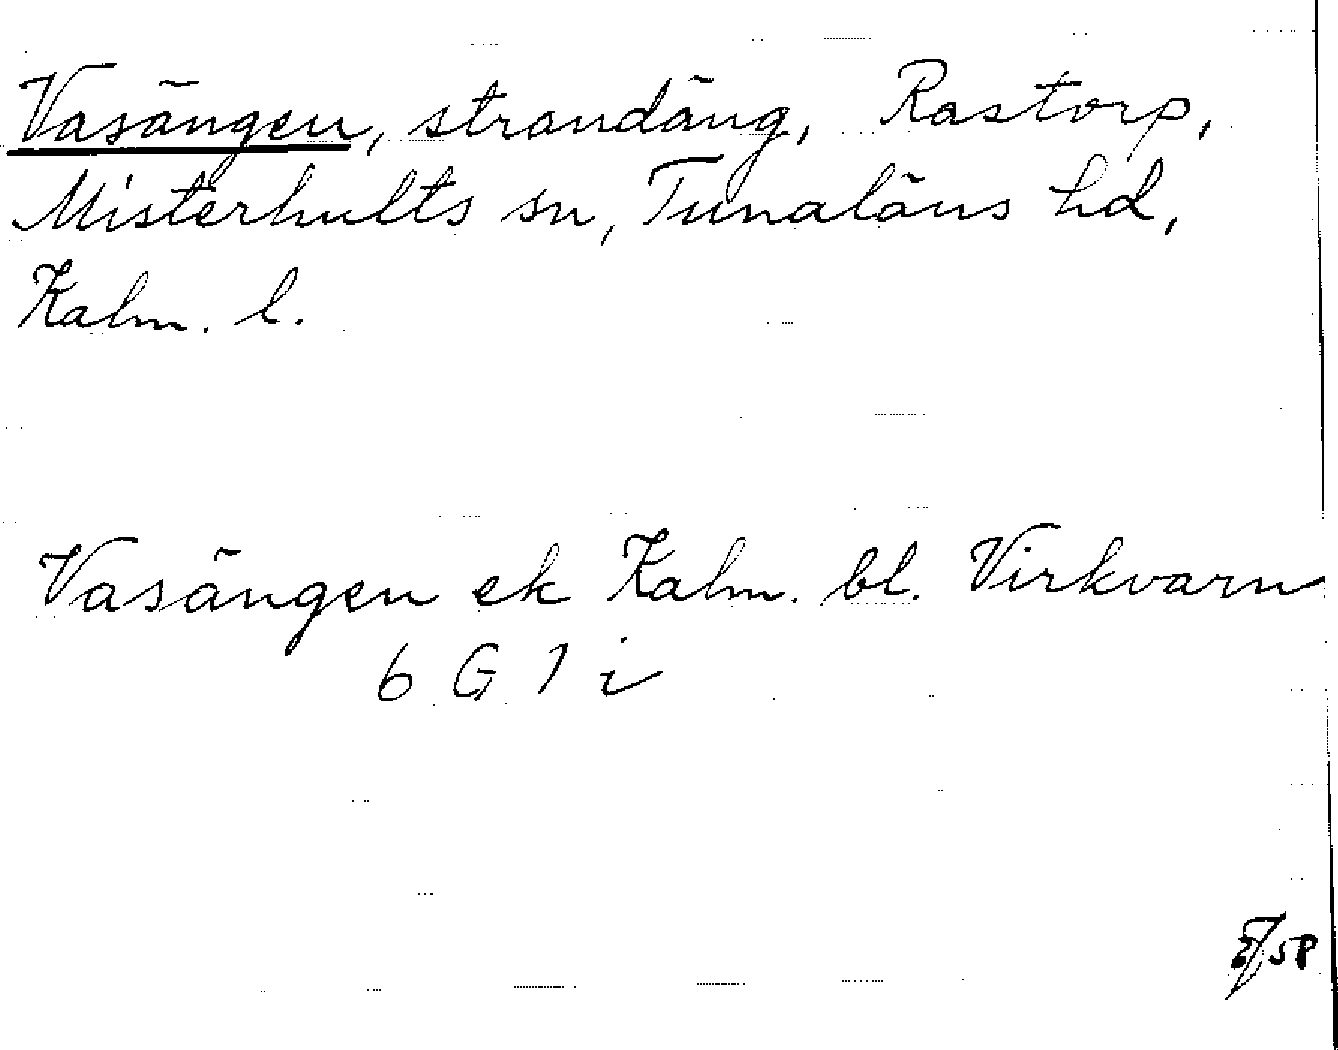 Vasängen, strandäng, Rastorp,
Misterhults sn, Tunaläns hd,
Kalm. l.
Vasängen ek Kalm. bl. Virkvarn
6 G 1 i